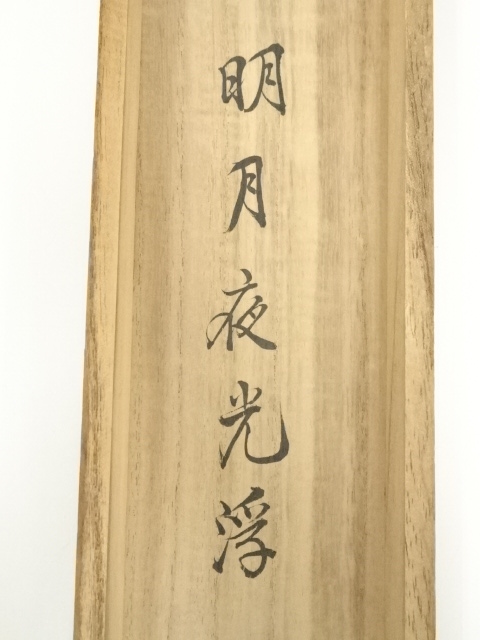 明月夜光浮